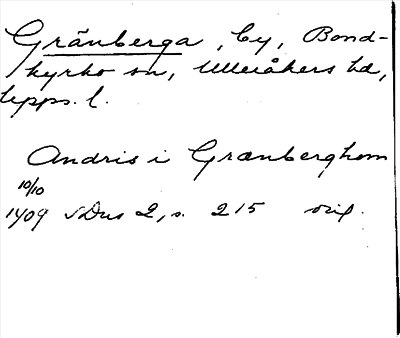 Gränberga, by, Bond-
kyrko sn, Ulleråkers hd,
Upps. l.
Andris i Grænberghom
10/10
1409 SDns 2, s. 215 orig.